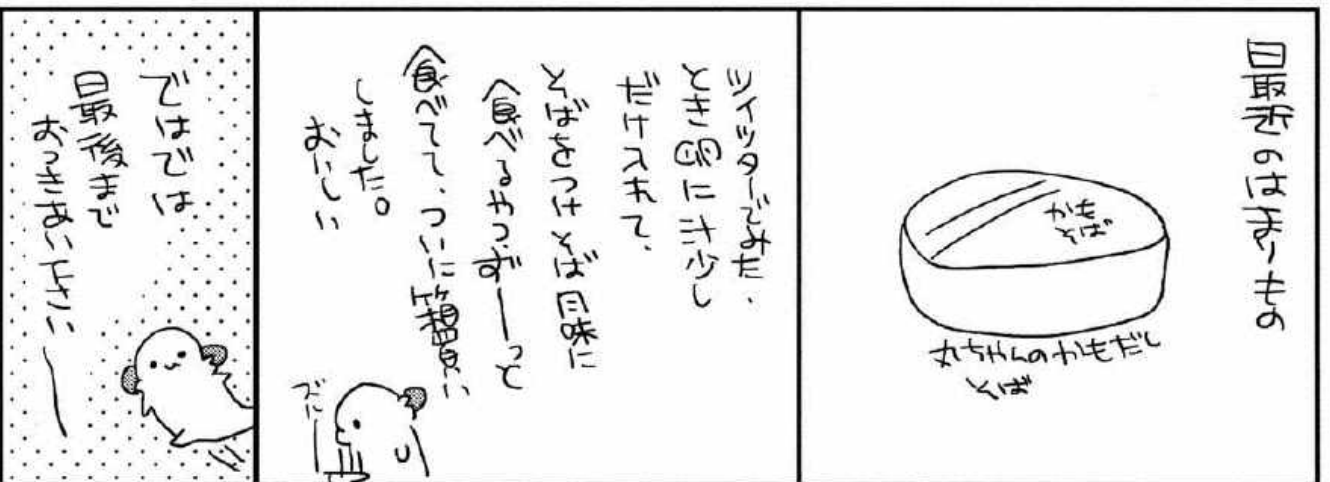 最近のはまりもの
かも
そば
丸ちゃんのかもだし
そば
ツイッターでみた、
とき卵に汁少し
だけ入れて、
そばをつけそば風味に
食べるやつずーっと
食べてて、ついに箱買い
しました。
おいしい
ズルー
ではでは
最後まで
おつきあい下さいー